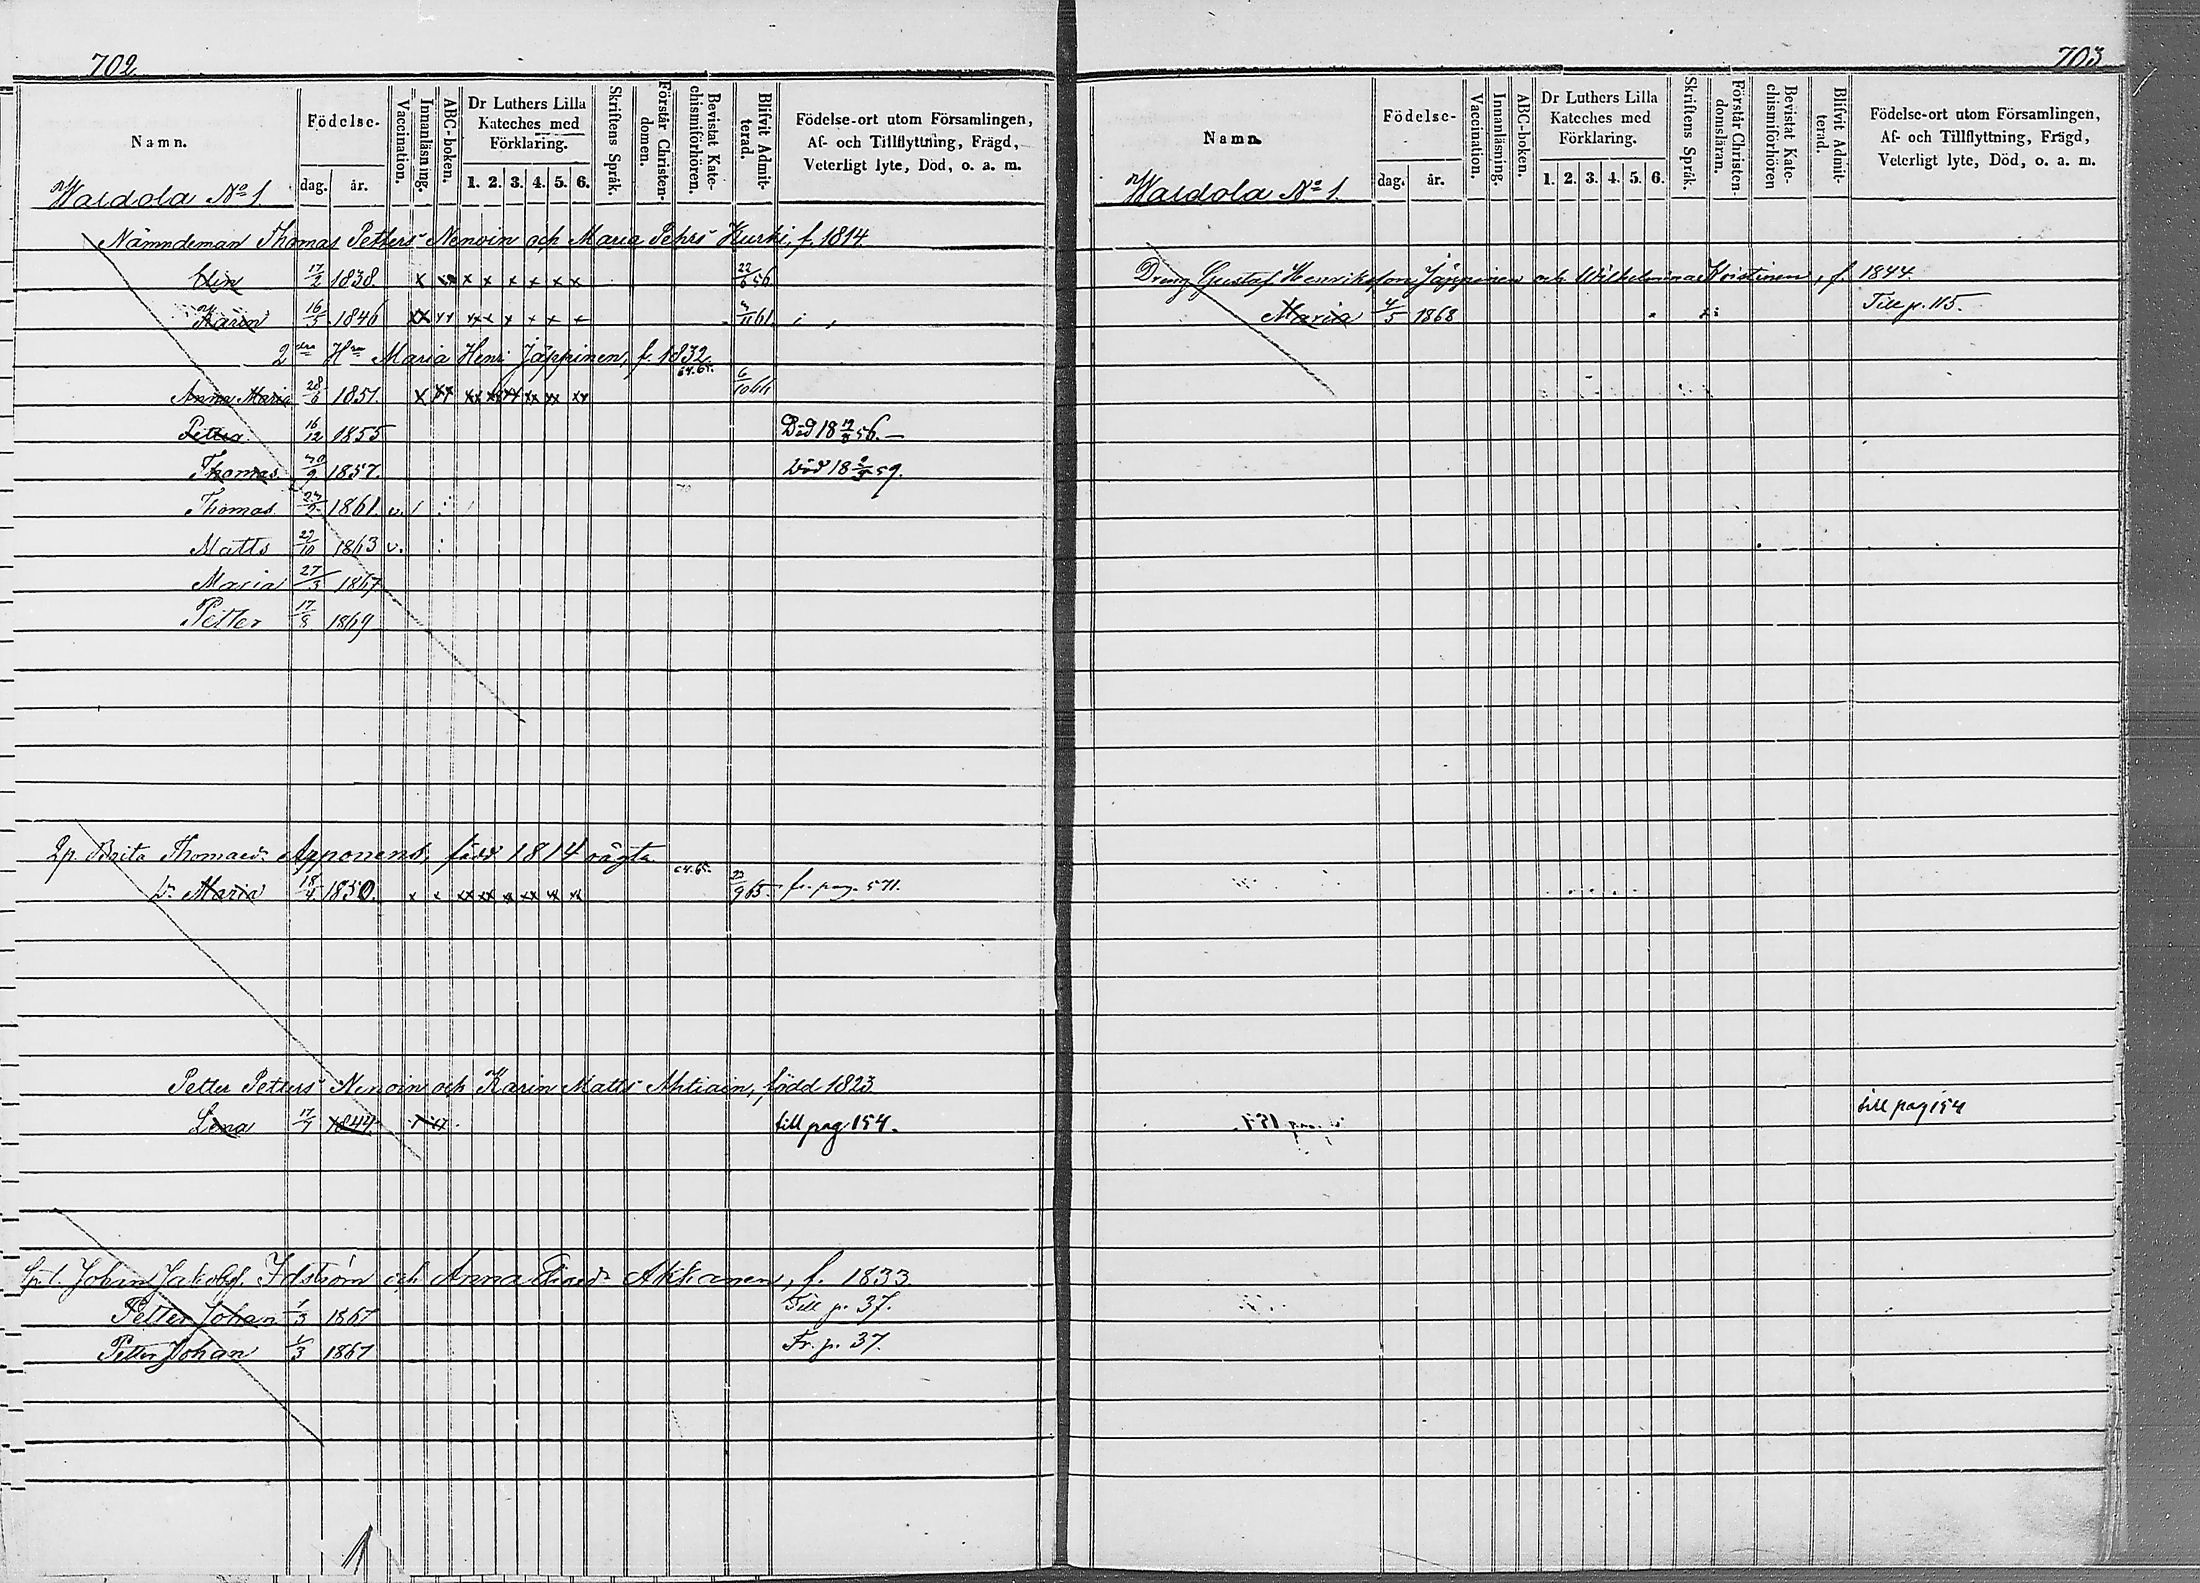 702
Namn.
Födelse-
dag.
år.
Vaccination.
Innanläsning.
ABC-boken.
Dr Luthers Lilla
Kateches med
Förklaring.
1. 2. 3. 4. 5. 6.
Skriftens Språk.
Förstår Christen-
domen.
Bevistat Kate-
chismiförhören.
Blifvit Admit-
terad.
Födelse-ort utom Församlingen,
Af- och Tillflyttning, Frägd,
Veterligt lyte, Död, o. a. m.
Waidola No 1.
Nämndeman Thomas Petters Nenoin och Maria Pehrs Kurki, f. 1814
Elin 17/2 1838. x x x x x x x 22/6 56.
Karin 16/3 1846 xx xx xx x x + + 61.
2dra Hru Maria Henr. Jäppinen, f. 1832.
64.65.
Anna Maria 28/6 1851. x xx xx xx xx xx xx xx 6/10 66
Petter 16/12 1855 Död 18 56. —
Thomas 1857. Död 18 59.
Thomas 1861. v.
Matts 1863 v.
Maria 27/3 1867
Petter 17/8 1869
Brita Thomaed. Apponens, född 1814
64.65.
Dr Maria 18/4 1850. x x xx xx xx xx xx xx 65. fr. pag. 571.
Petter Petters Nenoin och Karin Matts Ahtiain, född 1823
Lena 17/7 1844 till pag 154.
Johan Jakobsf. Idström och Anna Akkanen, f. 1833.
Petter Johan 1/3 1867 Till p. 37.
Petter Johan 1/3 1867 Fr. p. 37.
703
Namn.
Födelse-
dag.
år.
Vaccination.
Innanläsning.
ABC-boken.
Dr Luthers Lilla
Kateches med
Förklaring.
1. 2. 3. 4. 5. 6.
Skriftens Språk.
Förstår Christen-
domsläran.
Bevistat Kate-
chismiförhören
Blifvit Admit-
terad.
Födelse-ort utom Församlingen,
Af- och Tillflyttning, Frägd,
Veterligt lyte, Död, o. a. m.
Waidola No 1.
Dreng Gustaf Henriksson Jäppinen och Wilhelmina Kristinen, f. 1844.
Maria 4/5 1868 Till p. 115.
till pag 154